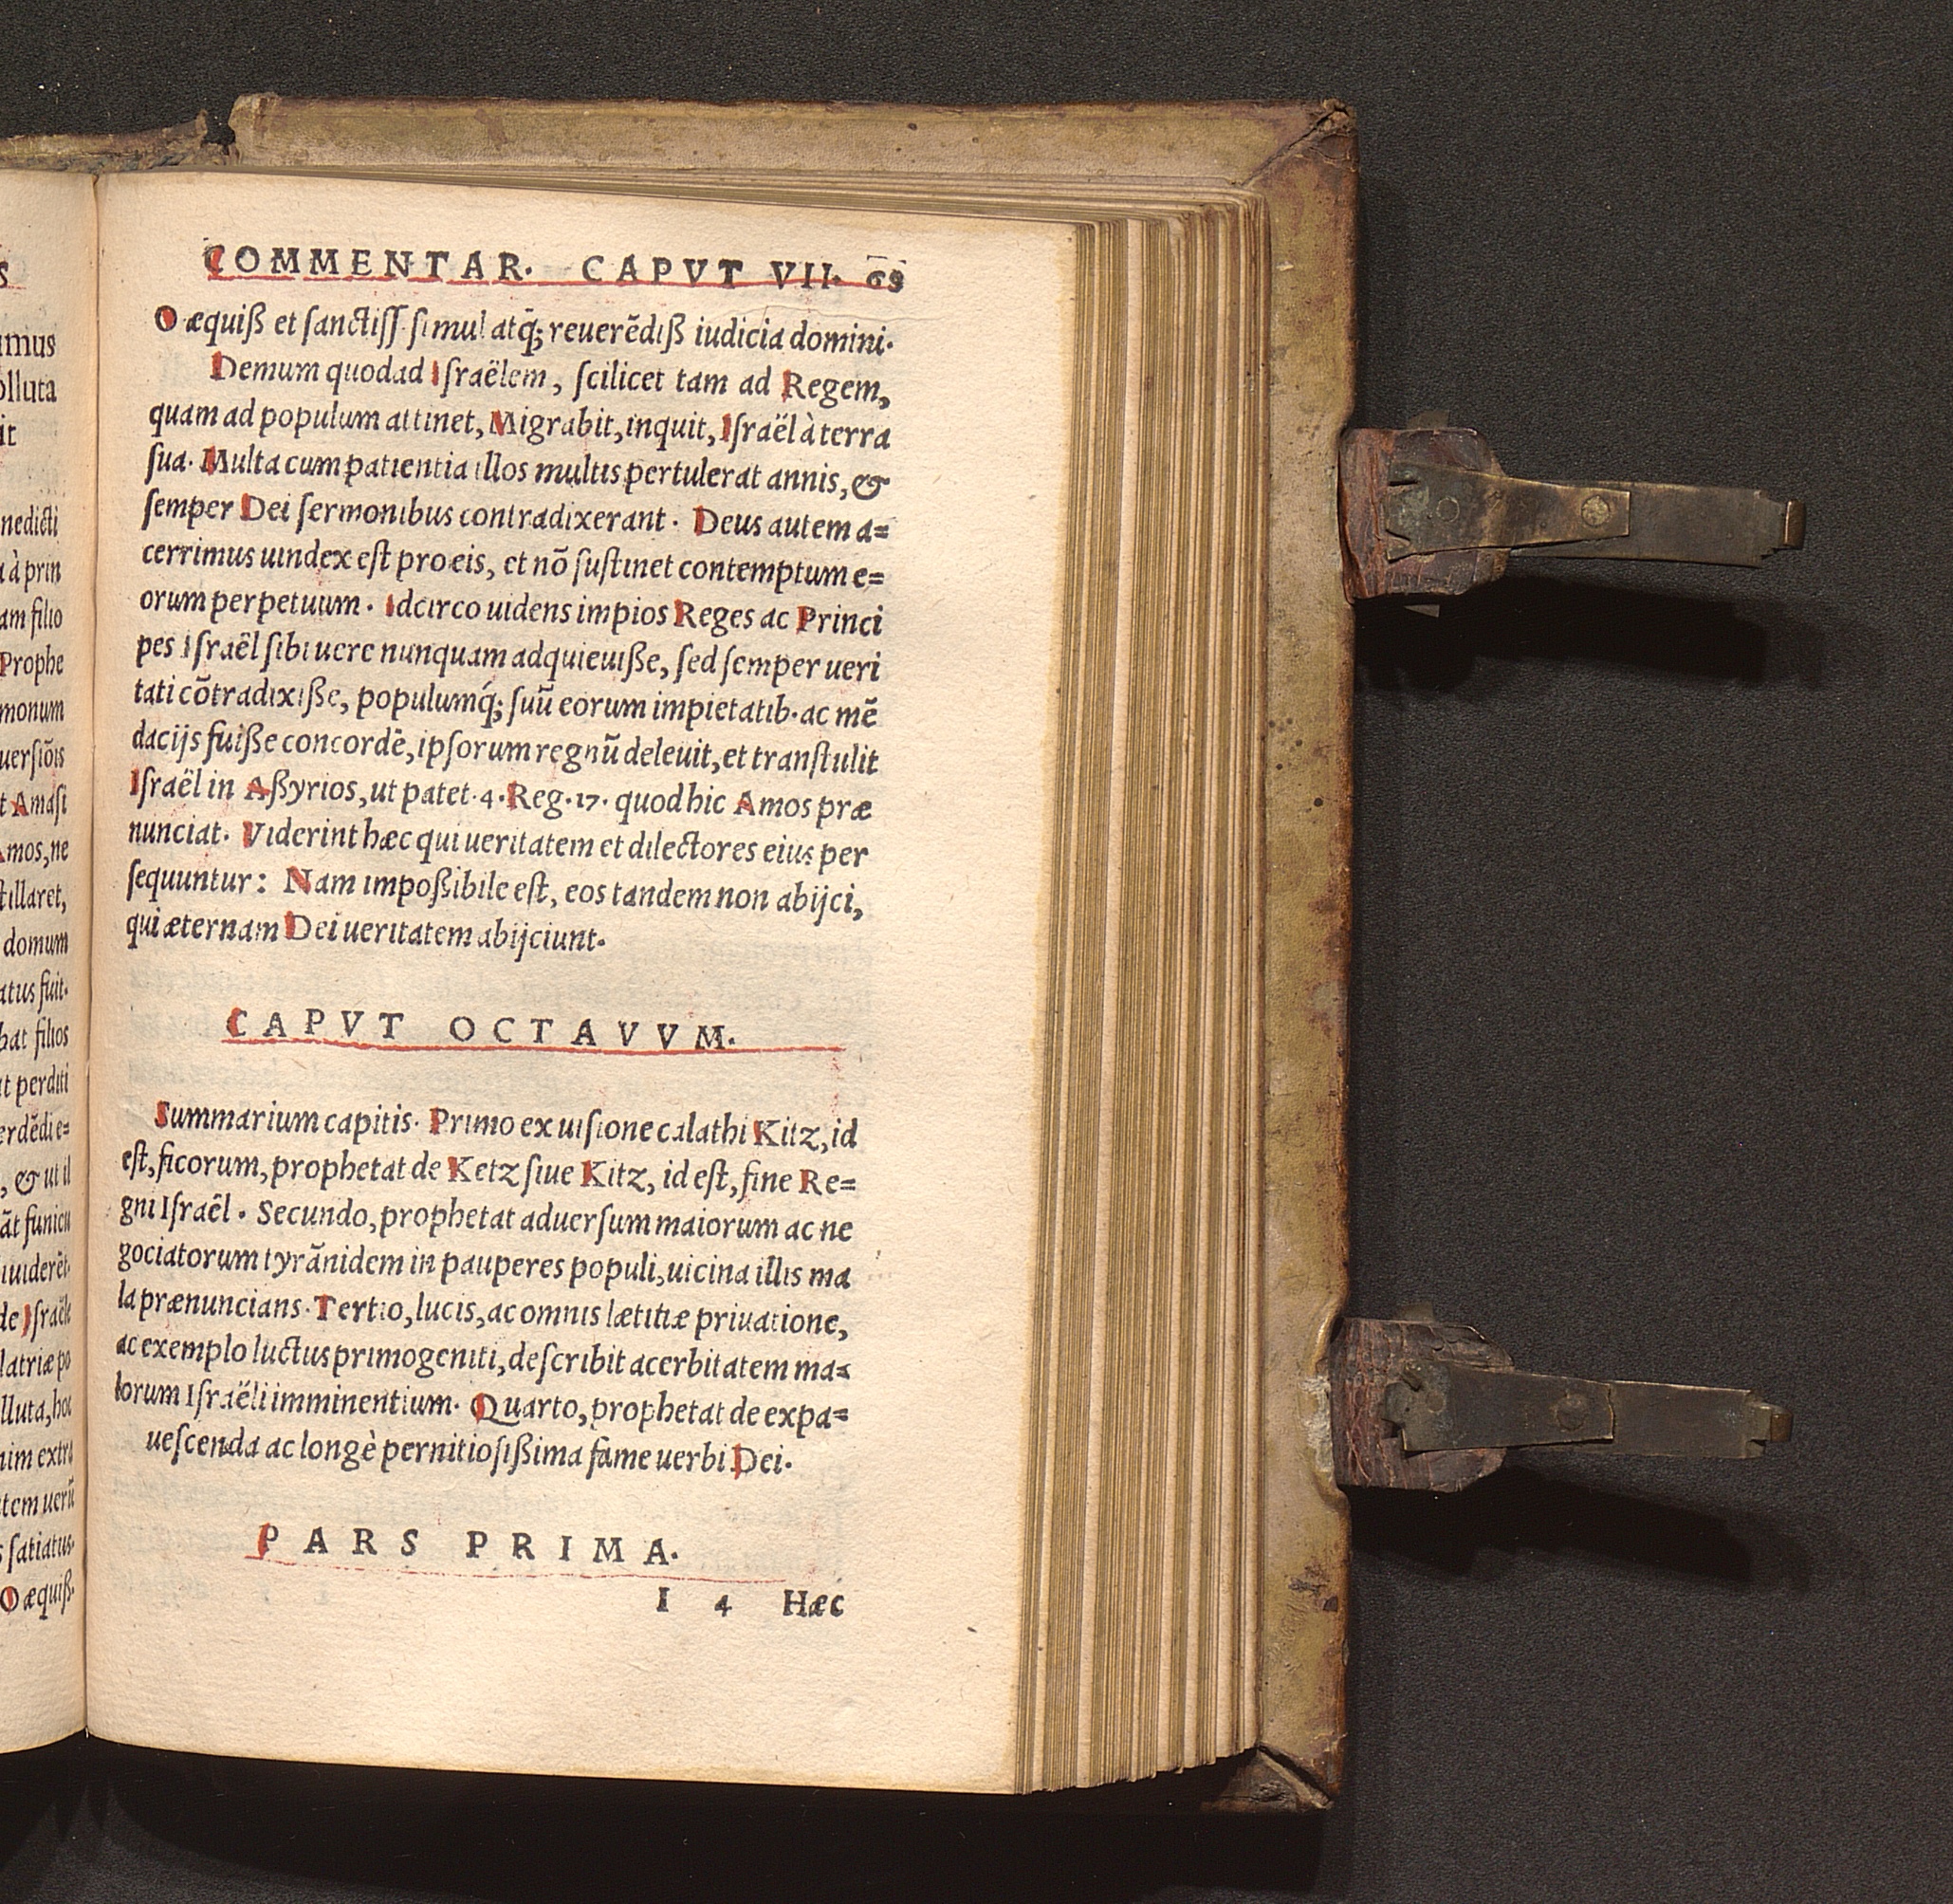 COMMENTAR. CAPVT VII. 68
O æquiß et ſanctiſſ. ſimul atq́; reuerēdiß iudicia domini.
Demum quod ad Iſraëlem, ſcilicet tam ad Regem,
quam ad populum attinet, Migrabit, inquit, Iſraël à terra
ſua. Multa cum patientia illos multis pertulerat annis, &
ſemper Dei ſermonibus contradixerant. Deus autem a=
cerrimus uindex eſt pro eis, et nō ſuſtinet contemptum e=
orum perpetuum. Idcirco uidens impios Reges ac Princi
pes Iſraël ſibi uere nunquam adquieuiße, ſed ſemper ueri
tati cōtradixiße, populumq́; ſuū eorum impietatib. ac mē
dacijs fuiße concordē, ipſorum regnū deleuit, et tranſtulit
Iſraël in Aßyrios, ut patet. 4. Reg. 17. quod hic Amos præ
nunciat. Viderint hæc qui ueritatem et dilectores eius per
ſequuntur: Nam impoßibile eſt, eos tandem non abijci,
qui æternam Dei ueritatem abijciunt.
CAPVT OCTAVVM.
Summarium capitis. Primo ex uiſione calathi Kitz, id
eſt, ficorum, prophetat de Ketz ſiue Kitz, id eſt, fine Re=
gni Iſraël. Secundo, prophetat aduerſum maiorum ac ne
gociatorum tyrānidem in pauperes populi, uicina illis ma
la prænuncians. Tertio, lucis, ac omnis lætitiæ priuatione,
ac exemplo luctus primogeniti, deſcribit acerbitatem ma=
lorum Iſraëli imminentium. Quarto, prophetat de expa=
ueſcenda ac longè pernitioſißima fame uerbi Dei.
PARS PRIMA.
I 4 Hæc